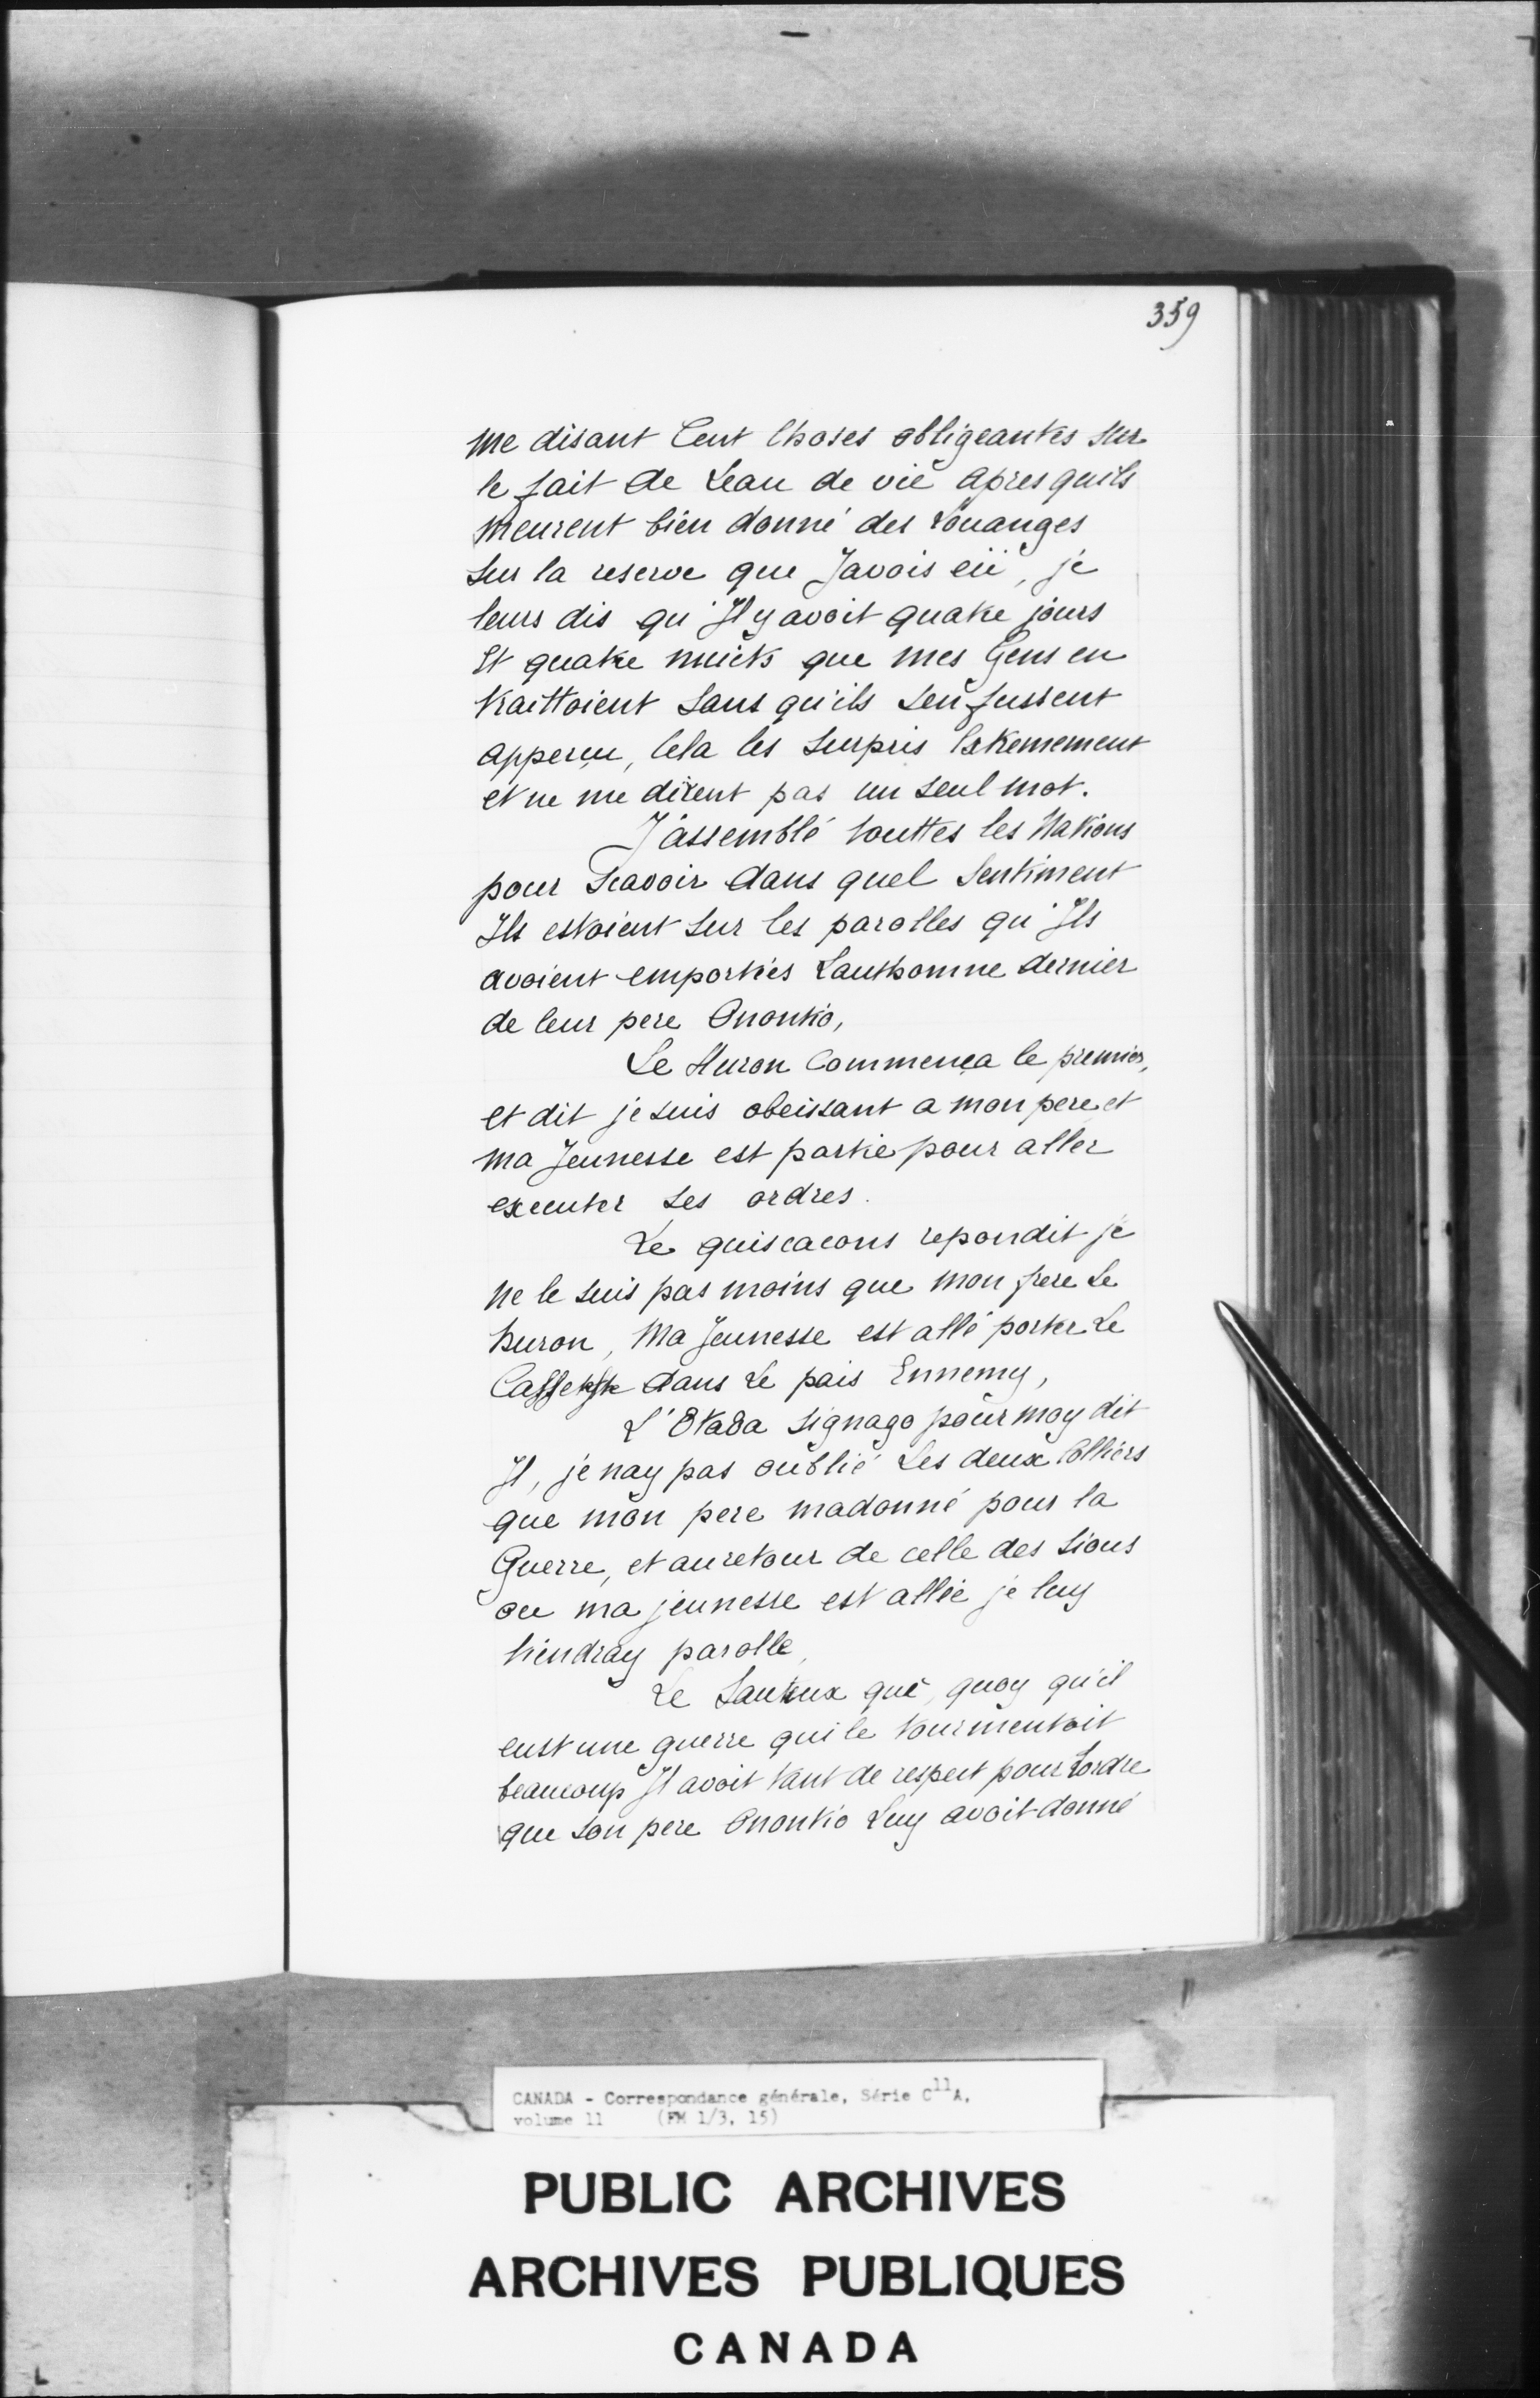 359
me disant Cent Choses obligeantes sur
le fait de Leau de vie apres quils
meurent bien donné des Louanges
sur la reserve que Javois eü, je
leurs dis qu'Il y avoit quatre jours
Et quatre nuicts que mes Gens en
traittoient sans qu'ils sen fussent
apperçu, Cela les surpris Extremement
et ne me dirent pas un seul mot.
J'assemblé touttes les Nations
pour Scavoir dans quel sentiment
Ils estoient sur les parolles qu'Ils
avoient emportées Lauthomne dernier
de leur pere Onontio,
Le Huron Commença le premier,
et dit je suis obeissant a mon pere et
ma Jeunesse est partie pour aller
executer ses ordres.
Le quiscacons repondit je
ne le suis pas moins que mon frere Le
huron, Ma Jeunesse est allé porter Le
dans Le pais Ennemy,
L'8ta8a Signago pour moy dit
Il, je nay pas oublié Les deux Colliers
que mon pere madonné pour la
Guerre, et au retour de celle des Sious
ou ma jeunesse est allée je luy
tiendray parolle,
Le Sauteux que, quoy qu'il
eust une guerre qui le tourmentoit
beaucoup Il avoit tant de respect pour Lordre
que son pere Onontio Luy avoit donné
CANADA - Correspondance générale, Série C11A,
volume 11 (FM 1/3, 15)
PUBLIC ARCHIVES
ARCHIVES PUBLIQUES
CANADA
L